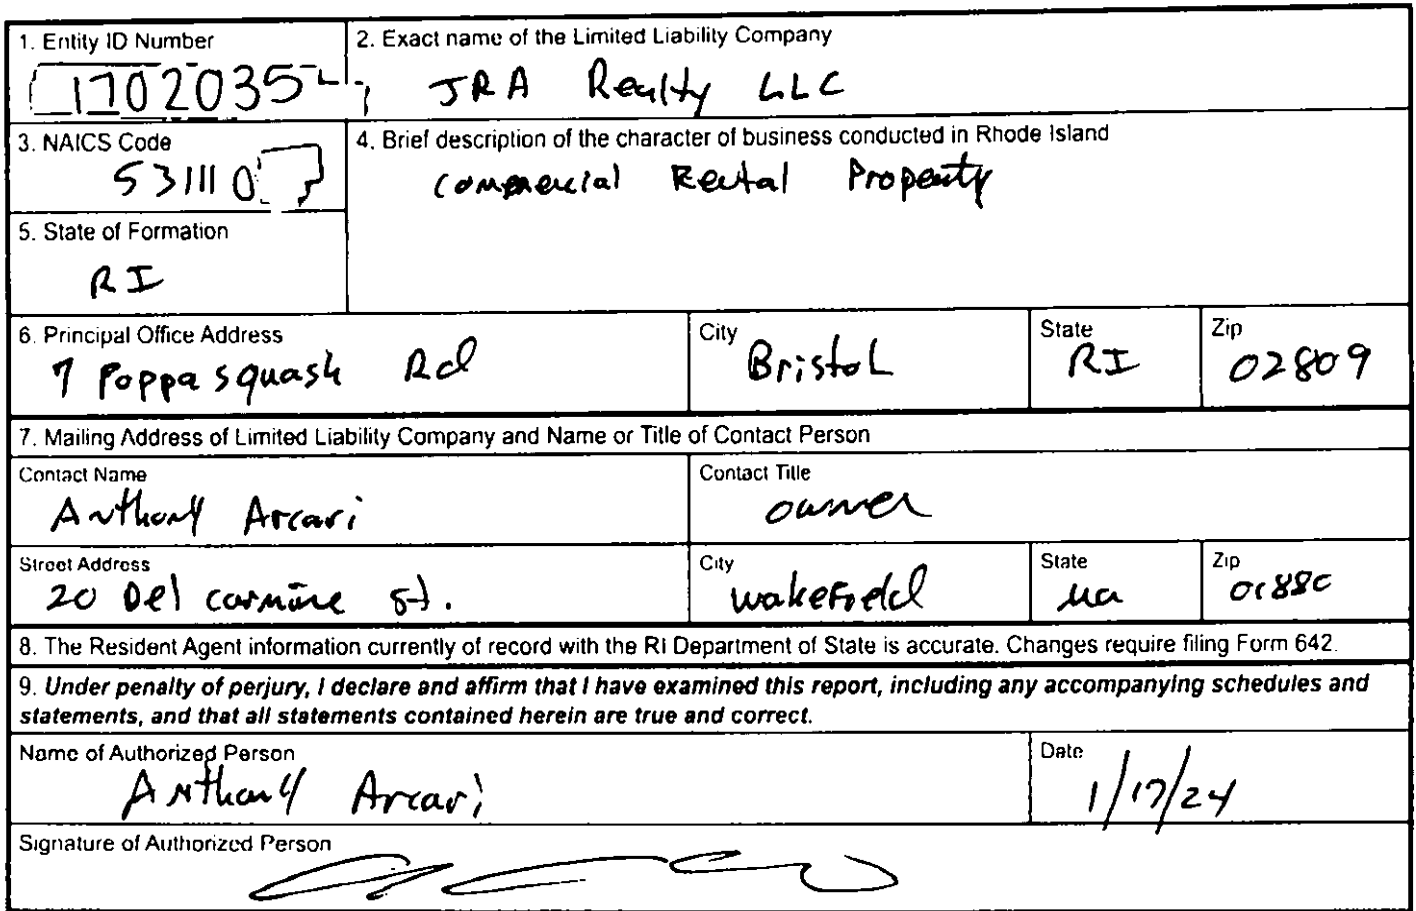 1. Entity ID Number
1702035
2. Exact name of the Limited Liability Company
JRA Realty LLC
3. NAICS Code
531110
4. Brief description of the character of business conducted in Rhode Island
Commercial Rental Property
5. State of Formation
RI
6. Principal Office Address
7 Poppasquash Rd
City
Bristol
State
RI
Zip
02809
7. Mailing Address of Limited Liability Company and Name or Title of Contact Person
Contact Name
Anthony Arcari
Contact Title
owner
Street Address
20 Del carmine st.
City
wakefield
State
Ma
Zip
01880
8. The Resident Agent information currently of record with the RI Department of State is accurate. Changes require filing Form 642.
9. Under penalty of perjury, I declare and affirm that I have examined this report, including any accompanying schedules and
statements, and that all statements contained herein are true and correct.
Name of Authorized Person
Anthony Arcari
Date
1/17/24
Signature of Authorized Person